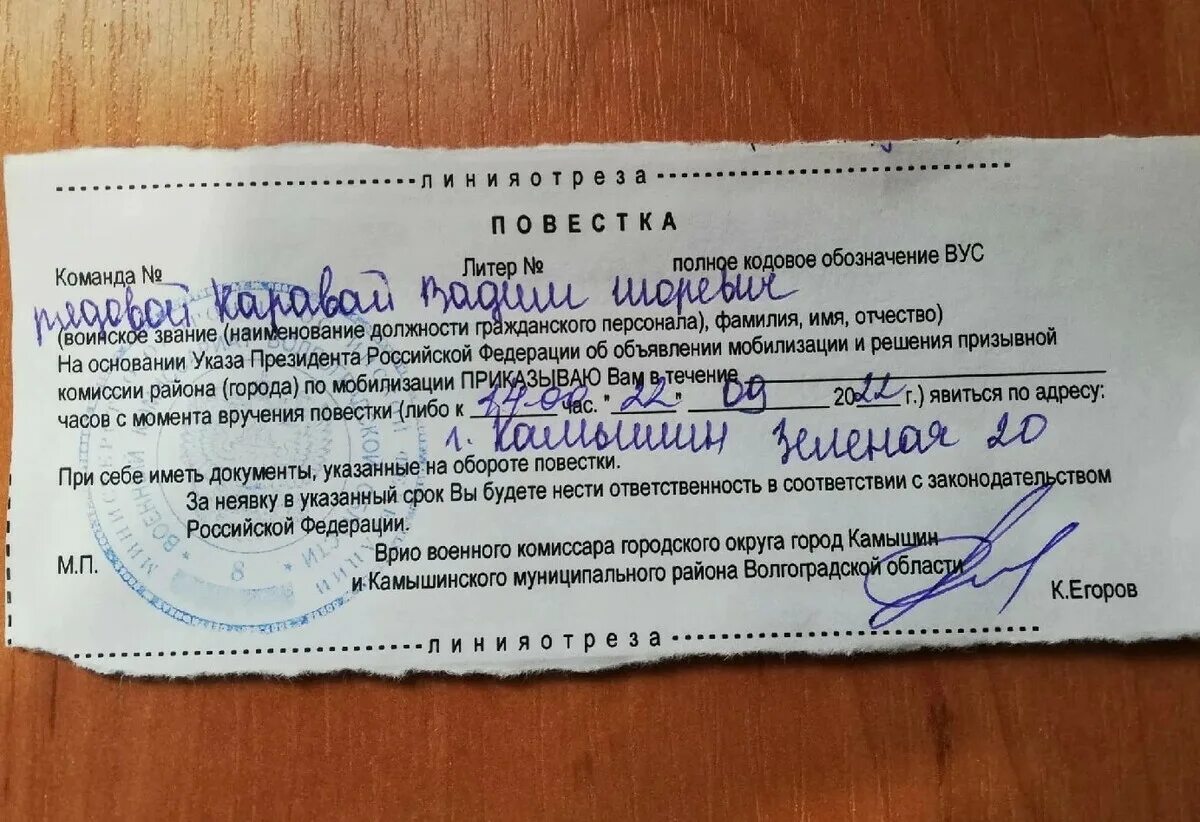 ЛИНИЯ ОТРЕЗА
ПОВЕСТКА
Команда № Литер № полное кодовое обозначение ВУС
рядовой Каравай Вадим Игоревич
(воинское звание (наименование должности гражданского персонала), фамилия, имя, отчество)
На основании Указа Президента Российской Федерации об объявлении мобилизации и решения призывной
комиссии района (города) по мобилизации ПРИКАЗЫВАЮ Вам в течение
часов с момента вручения повестки (либо к 14 00 час. "22" 09 2022 г.) явиться по адресу:
г. Камышин Зеленая 20
При себе иметь документы, указанные на обороте повестки.
За неявку в указанный срок Вы будете нести ответственность в соответствии с законодательством
Российской Федерации.
М.П. Врио военного комиссара городского округа город Камышин
и Камышинского муниципального района Волгоградской области
К.Егоров
8
ЛИНИЯ ОТРЕЗА